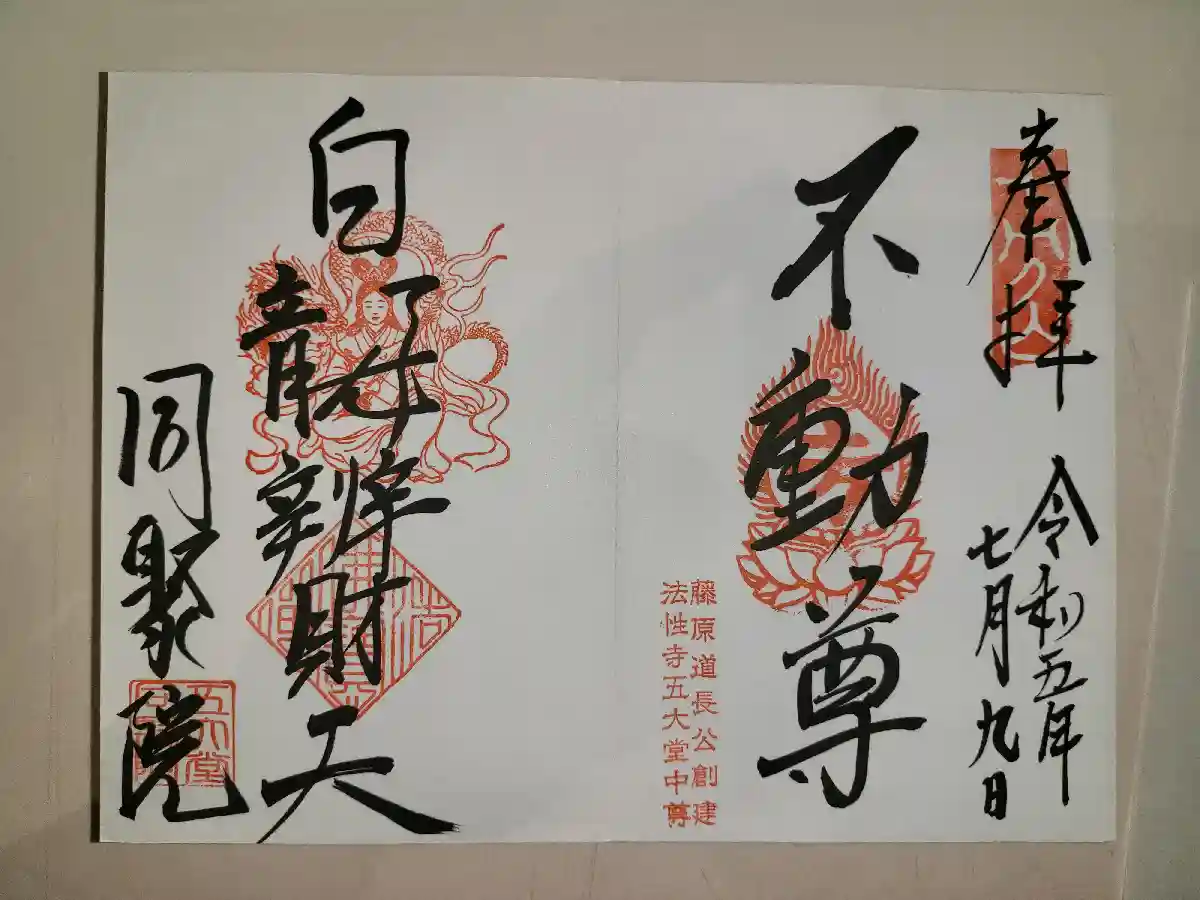 奉拝
令和五年
七月九日
不動尊
藤原道長公創建
法性寺五大堂中尊
白龍辨財天
同聚院